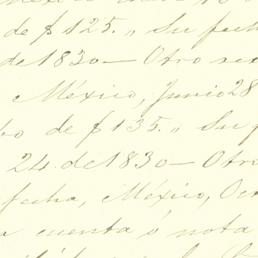 de $125. „ Su fecha
de 1830— Otro rec
México, Junio 28
bo de $135. „ Su f
24. de 1830— Otro
fecha, México, Oc
a cuenta ó nota